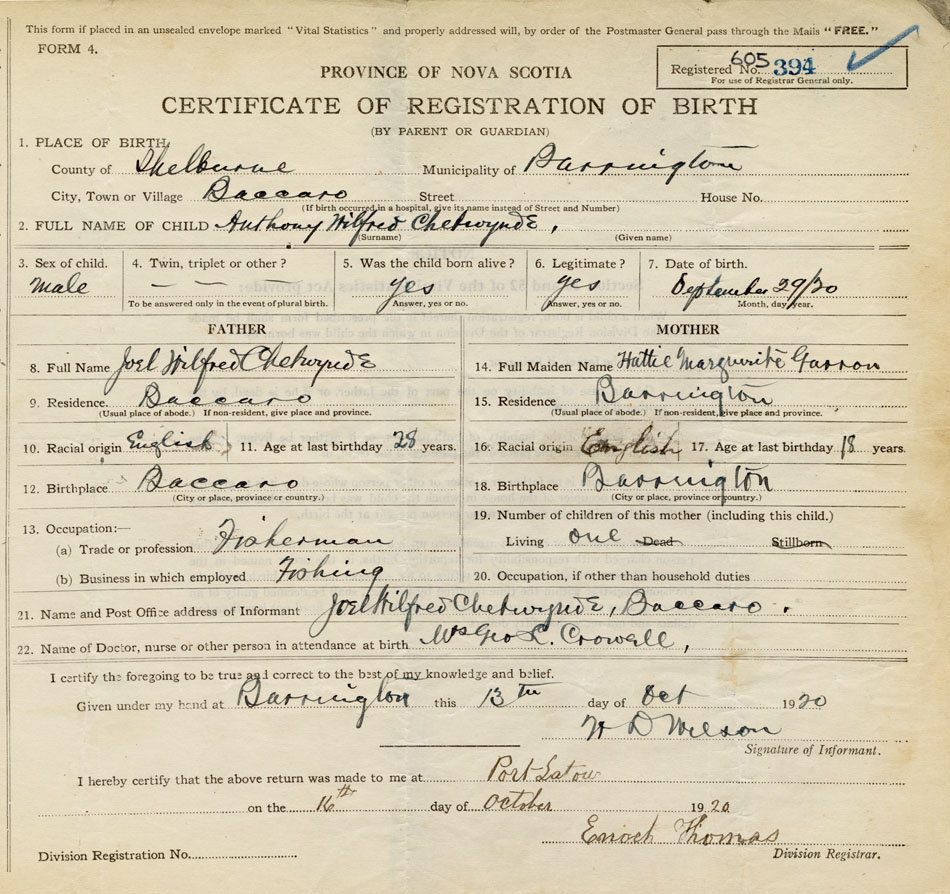 This form if placed in an unsealed envelope marked "Vital Statistics" and properly addressed will, by order of the Postmaster General pass through the Mails "FREE."
FORM 4.
605
Registered No. 394
For use of Registrar General only.
PROVINCE OF NOVA SCOTIA
CERTIFICATE OF REGISTRATION OF BIRTH
(BY PARENT OR GUARDIAN)
1. PLACE OF BIRTH
County of Shelburne Municipality of Barrington
City, Town or Village Baccaro Street House No.
(If birth occurred in a hospital, give its name instead of Street and Number)
2. FULL NAME OF CHILD Anthony Wilfred Chetwynde,
(Surname) (Given name)
3. Sex of child. 4. Twin, triplet or other? 5. Was the child born alive? 6. Legitimate? 7. Date of birth.
Male — — yes yes September 29/20
To be answered only in the event of plural birth. Answer, yes or no. Answer, yes or no. Month, day, year.
FATHER MOTHER
8. Full Name Joel Wilfred Chetwynde 14. Full Maiden Name Hattie Marguerite Garron
9. Residence. Baccaro 15. Residence Barrington
(Usual place of abode.) If non-resident, give place and province. (Usual place of abode.) If non-resident, give place and province.
10. Racial origin English 11. Age at last birthday 28 years. 16. Racial origin English 17. Age at last birthday 18 years.
12. Birthplace Baccaro 18. Birthplace Barrington
(City or place, province or country.) (City or place, province or country.)
13. Occupation:— 19. Number of children of this mother (including this child.)
(a) Trade or profession Fisherman Living one Dead Stillborn
(b) Business in which employed Fishing 20. Occupation, if other than household duties
21. Name and Post Office address of Informant Joel Wilfred Chetwynde, Baccaro.
22. Name of Doctor, nurse or other person in attendance at birth Mrs Geo L. Crowell,
I certify the foregoing to be true and correct to the best of my knowledge and belief.
Given under my hand at Barrington this 13th day of Oct 1920
W D Wilson
Signature of Informant.
I hereby certify that the above return was made to me at Port Latour
on the 16th day of October 1920
Enoch Thomas
Division Registration No. Division Registrar.